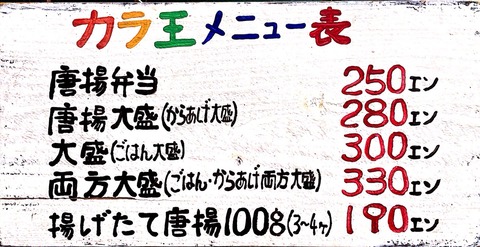 カラ王メニュー表
唐揚弁当 250エン
唐揚大盛(からあげ大盛) 280エン
大盛(ごはん大盛) 300エン
両方大盛(ごはん・からあげ両方大盛) 330エン
揚げたて唐揚100g(3~4ヶ) 190エン